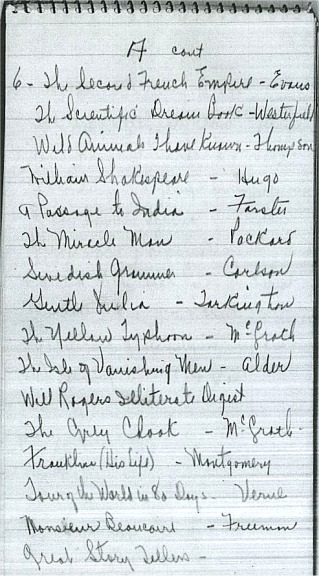 A cont
6 - The Second French Empire - Evans
The Scientific Dream Book - Westerfield
Wild Animals I have Known - Thompson
William Shakespeare - Hugo
A Passage to India - Forster
The Miracle Man - Packard
Swedish Grammer - Carlson
Gentle Julia - Tarkington
The Yellow Typhoon - McGrath
The Isle of Vanishing Men - Alder
Will Rogers Illiterate Digest
The Grey Cloak - McGrath
Franklin (His Life) - Montgomery
Tour of the World in 80 Days - Verne
Monsieur Beaucaire - Freeman
Great Story Tellers -